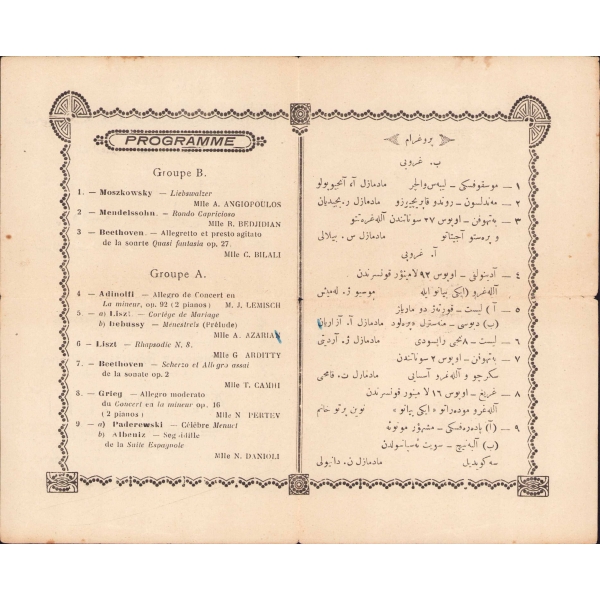 PROGRAMME
Groupe B.
1. — Moszkowsky — Liebswalzer
Mlle A. ANGIOPOULOS
2 — Mendelssohn. — Rondo Capricioso
Mlle R. BEDJIDIAN
3 — Beethoven. — Allegretto et presto agitato
de la sonrte Quasi fantasia op. 27.
Mlle C. BILALI
Groupe A.
4 — Adinolfi — Allegro de Concert en
La mineur, op. 92 ( 2 pianos ) M. J. LEMISCH
5 — a) Liszt. — Cortége de Mariage
b) Debussy — Ménestrels (Prélude)
Mlle A. AZARIAN
6 — Liszt — Rhapsodie N. 8.
Mlle G ARDITTY
7. — Beethoven — Scherzo et Allegro assai
de la sonate op. 2
Mlle T. CAMHI
8. — Grieg — Allegro moderato
du Concert en la mineur op. 16
( 2 pianos ) Mlle N PERTEV
9 — a) Paderewski — Célèbre Menuet
b) Albeniz — Seguidille
de la Suite Espagnole
Mlle N. DANIOLI
پروغرام
ب. غروپی
١ — موسقوفسكی — مادمازل آ. آنجیوپولو
٢ — مندلسون — روندو قاپریچیوزو مادمازل ر. بجیدیان
٣ — بتهوفن — اوپوس ٢٧
مادمازل س. بیلالی
آ. غروپی
٤ — آدینولفی — اوپوس ٩٢ لا مینور قونسرتدن
موسیو ژ. له‌میش
٥ — آ ) لیست —
(ب) دبوسی — مادمازل آ. آزاریان
٦ — لیست — ٨ نجی راپسودی مادمازل ژ. آردیتی
٧ — بتهوفن — اوپوس ٢
مادمازل ت. قامحی
٨ — غریغ — اوپوس ١٦ لا مینور قونسرتدن
آله‌غرو موده‌راتو « ایكی پیانو » نوین پرتو خانم
٩ — (آ) پاده‌ره‌فسكی —
(ب) آلبه‌نیچ — سویت
مادمازل ن. دانیولی